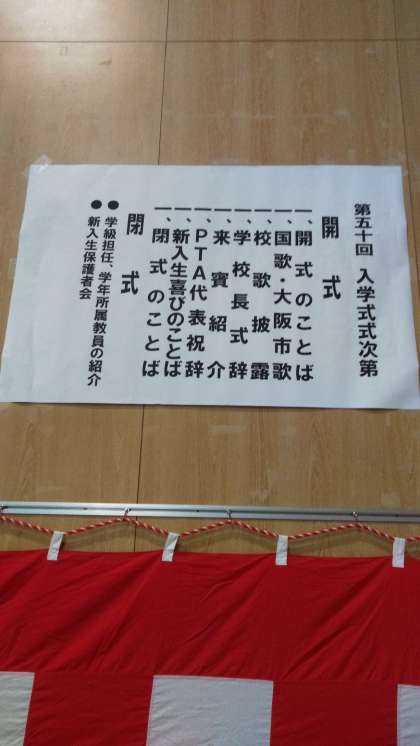 第五十回 入学式式次第
開式
一、開式のことば
一、国歌・大阪市歌
一、校歌披露
一、学校長式辞
一、来賓紹介
一、PTA代表祝辞
一、新入生喜びのことば
一、閉式のことば
閉式
●学級担任、学年所属教員の紹介
●新入生保護者会